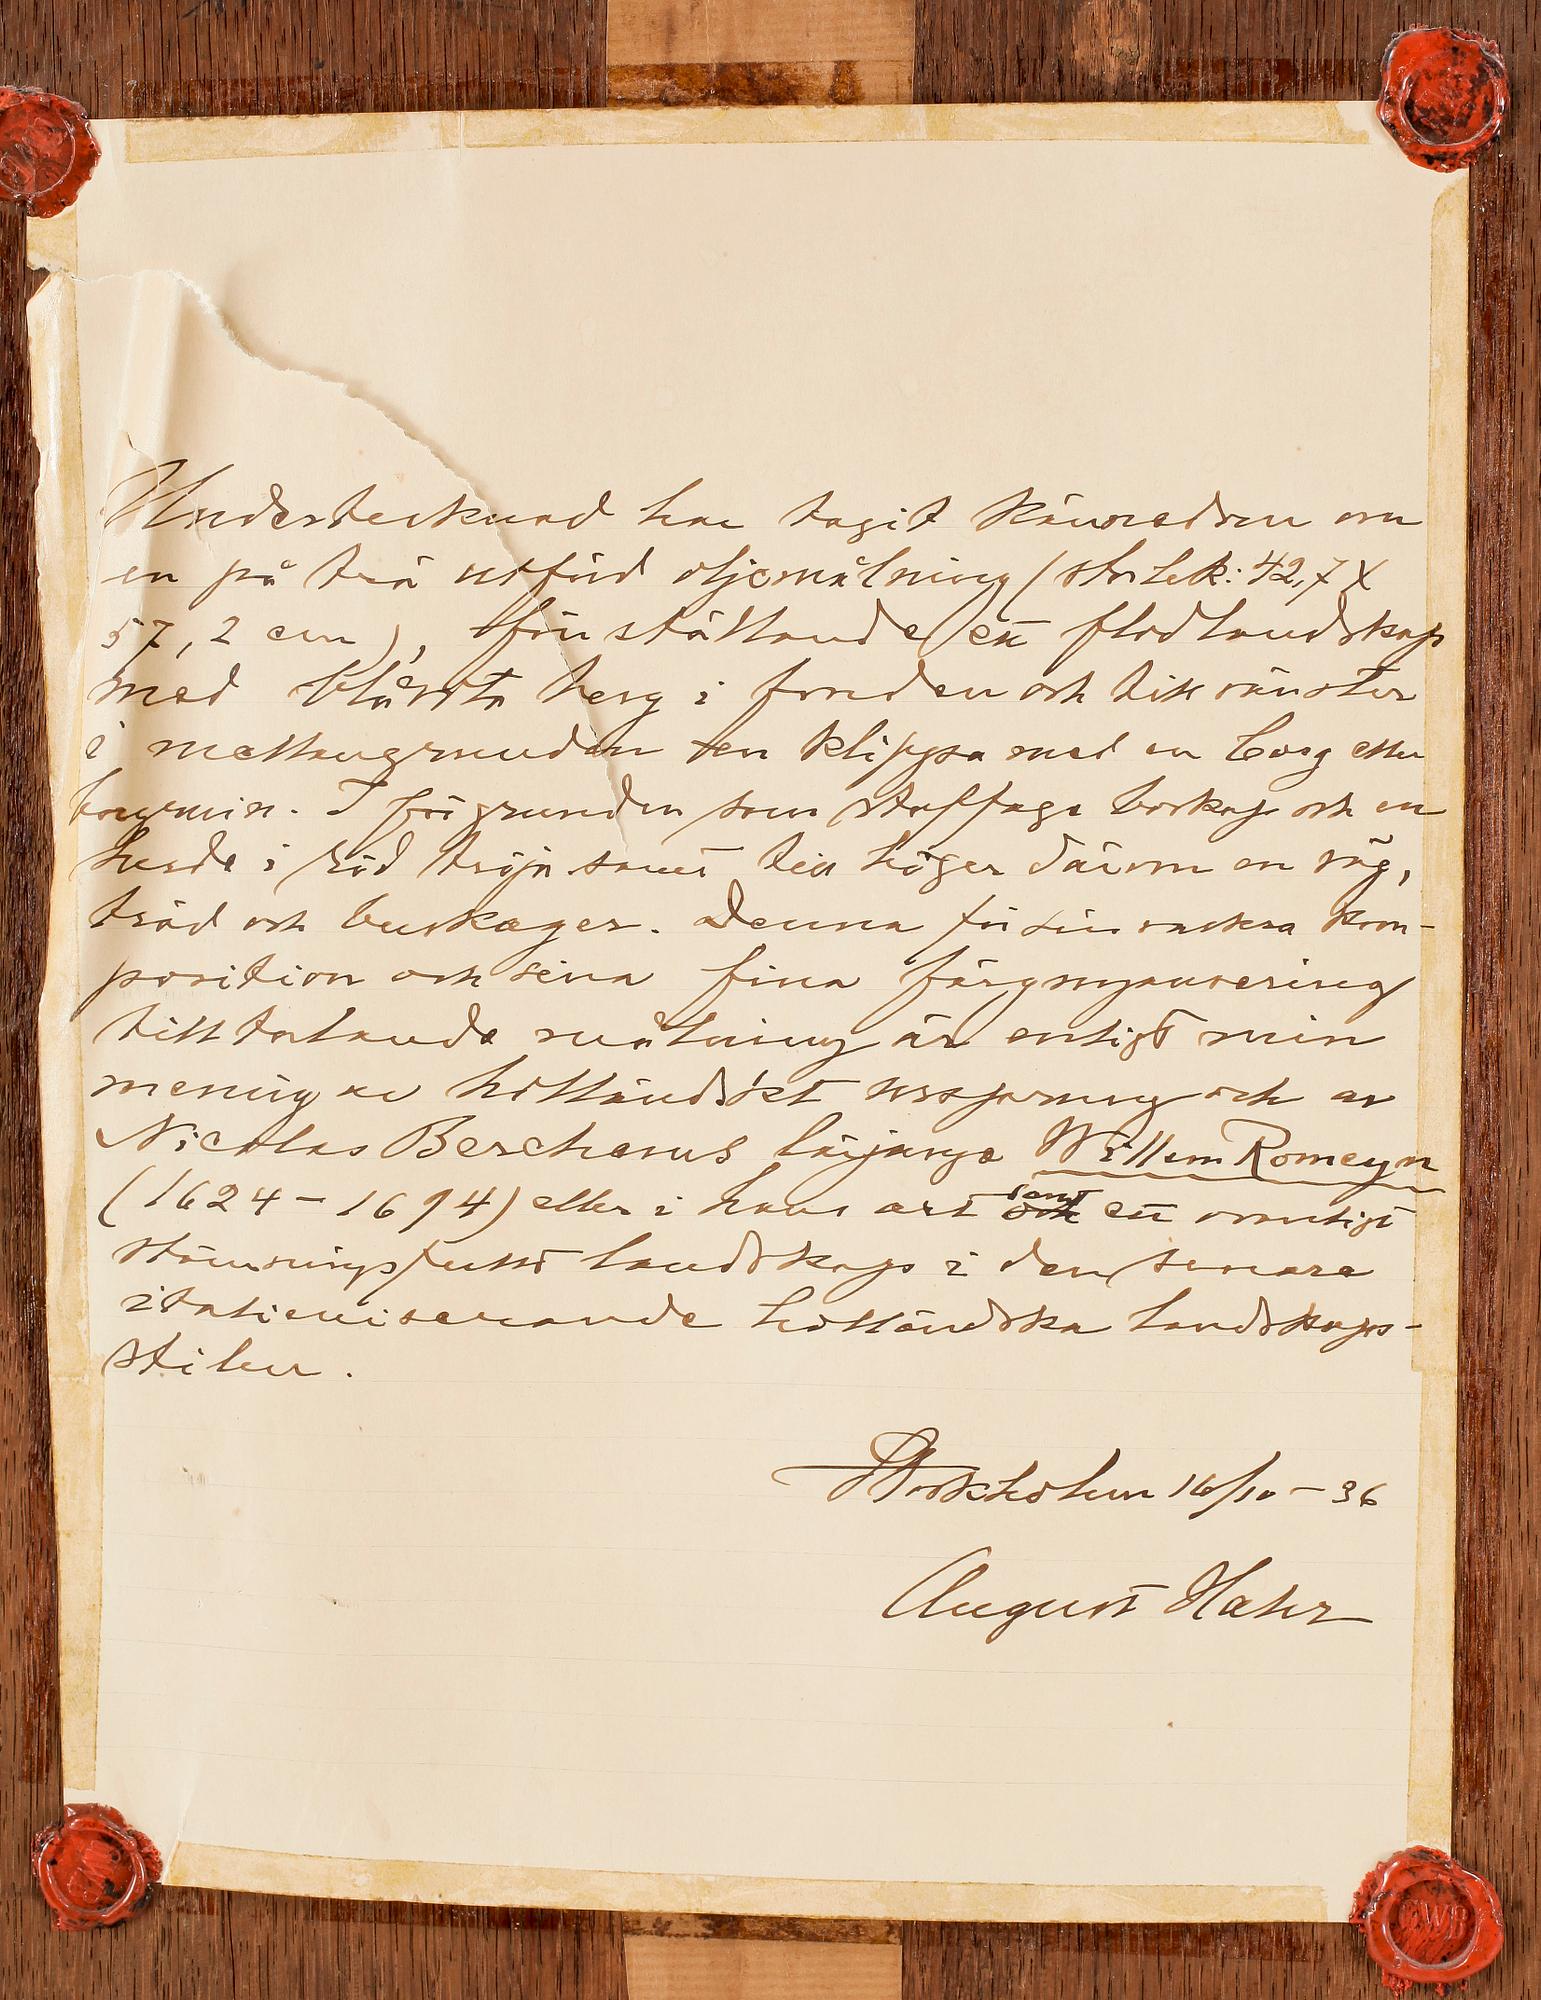 Undertecknad har tagit kännedom om
en på trä utförd oljemålning (storlek: 42,7 X
57,2 cm), föreställande ett flodlandskap
med blånste berg i fonden och till vänster
i mellangrunden en klippa med en borg eller
borgruin. I förgrunden som staffage boskap och en
herde i röd tröja samt till höger därom en väg,
träd och buskager. Denna för sin vackra kom-
position och sina fina färgnyansering
tilltalande målning är enligt min
mening av holländskt ursprung och av
Nicolas Berchems lärjunge Willem Romeyn
(1624-1694) eller i hans art samt ett ovanligt
stämningsfullt landskap i den senare
italieniserande holländska landskaps-
stilen.
Stockholm 16/10 - 36
August Hahr